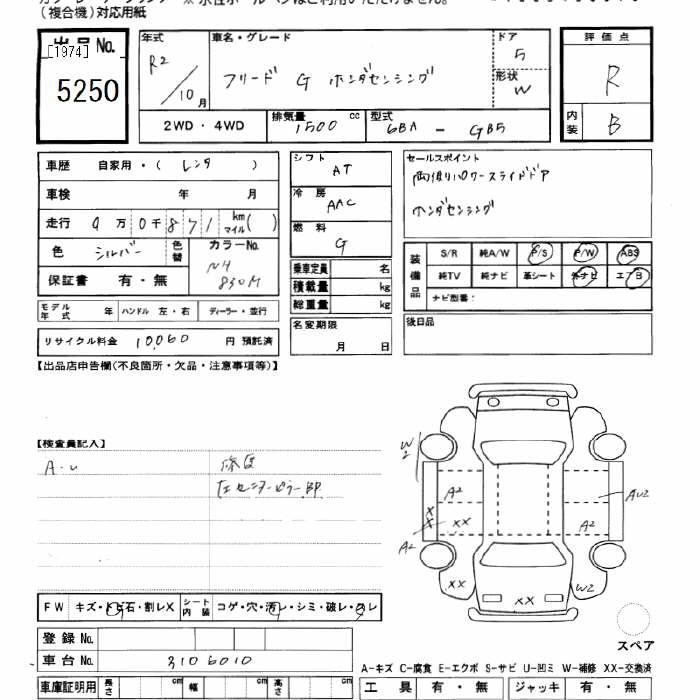 (複合機)対応用紙
出品No.
[1974]
5250
年式 R2/10月
車名・グレード フリード G ホンダセンシング
ドア 5
形状 W
2WD・4WD
排気量 1500 cc
型式 6BA - GB5
評価点 R
内装 B
車歴 自家用・(レンタ)
車検 年 月
走行 9万0千871 km マイル( )
色 シルバー 色替
カラーNo. NH830M
保証書 有・無
モデル年式 年 ハンドル 左・右 ディーラー・並行
リサイクル料金 10,060 円 預託済
シフト AT
冷房 AAC
燃料 G
乗車定員 名
積載量 kg
総重量 kg
名変期限 月 日
セールスポイント
両側パワースライドドア
ホンダセンシング
装備品
S/R 純A/W P/S P/W ABS
純TV 純ナビ 革シート 外ナビ エアB
ナビ型番:
後日品
【出品店申告欄(不良箇所・欠品・注意事項等)】
【検査員記入】
A・U
修復
左センターピラーBP
W2
A2
AU2
XX
XX
A2
A2
XX
XX
W2
FW キズ・トビ石・割レX
シート内装 コゲ・穴・汚レ・シミ・破レ・スレ
登録No.
車台No. 3106010
スペア
A-キズ C-腐食 E-エクボ S-サビ U-凹ミ W-補修 XX-交換済
車庫証明用 長さ cm 幅 cm 高さ cm
工具 有・無 ジャッキ 有・無